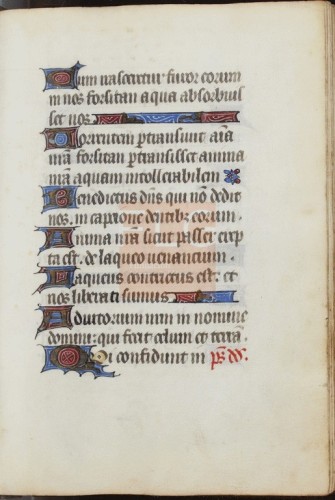 Cum irasceretur furor eorum
in nos forsitan aqua absorbuis
set nos
Torrentem ptransiuit aīa
nrā forsitan ptransisset anima
nrā aquam intollerabilem
Benedictus dn̄s qui non dedit
nos, in captione dentibꝫ eorum.
Anima nrā sicut passer erep
ta est. de laqueo uenancium.
Laqueus contritus est. et
nos liberati sumus
Adiutorium nrm in nomine
domini: qui fecit celum et terrā.
Qui confidunt in ps̄ dd̄.